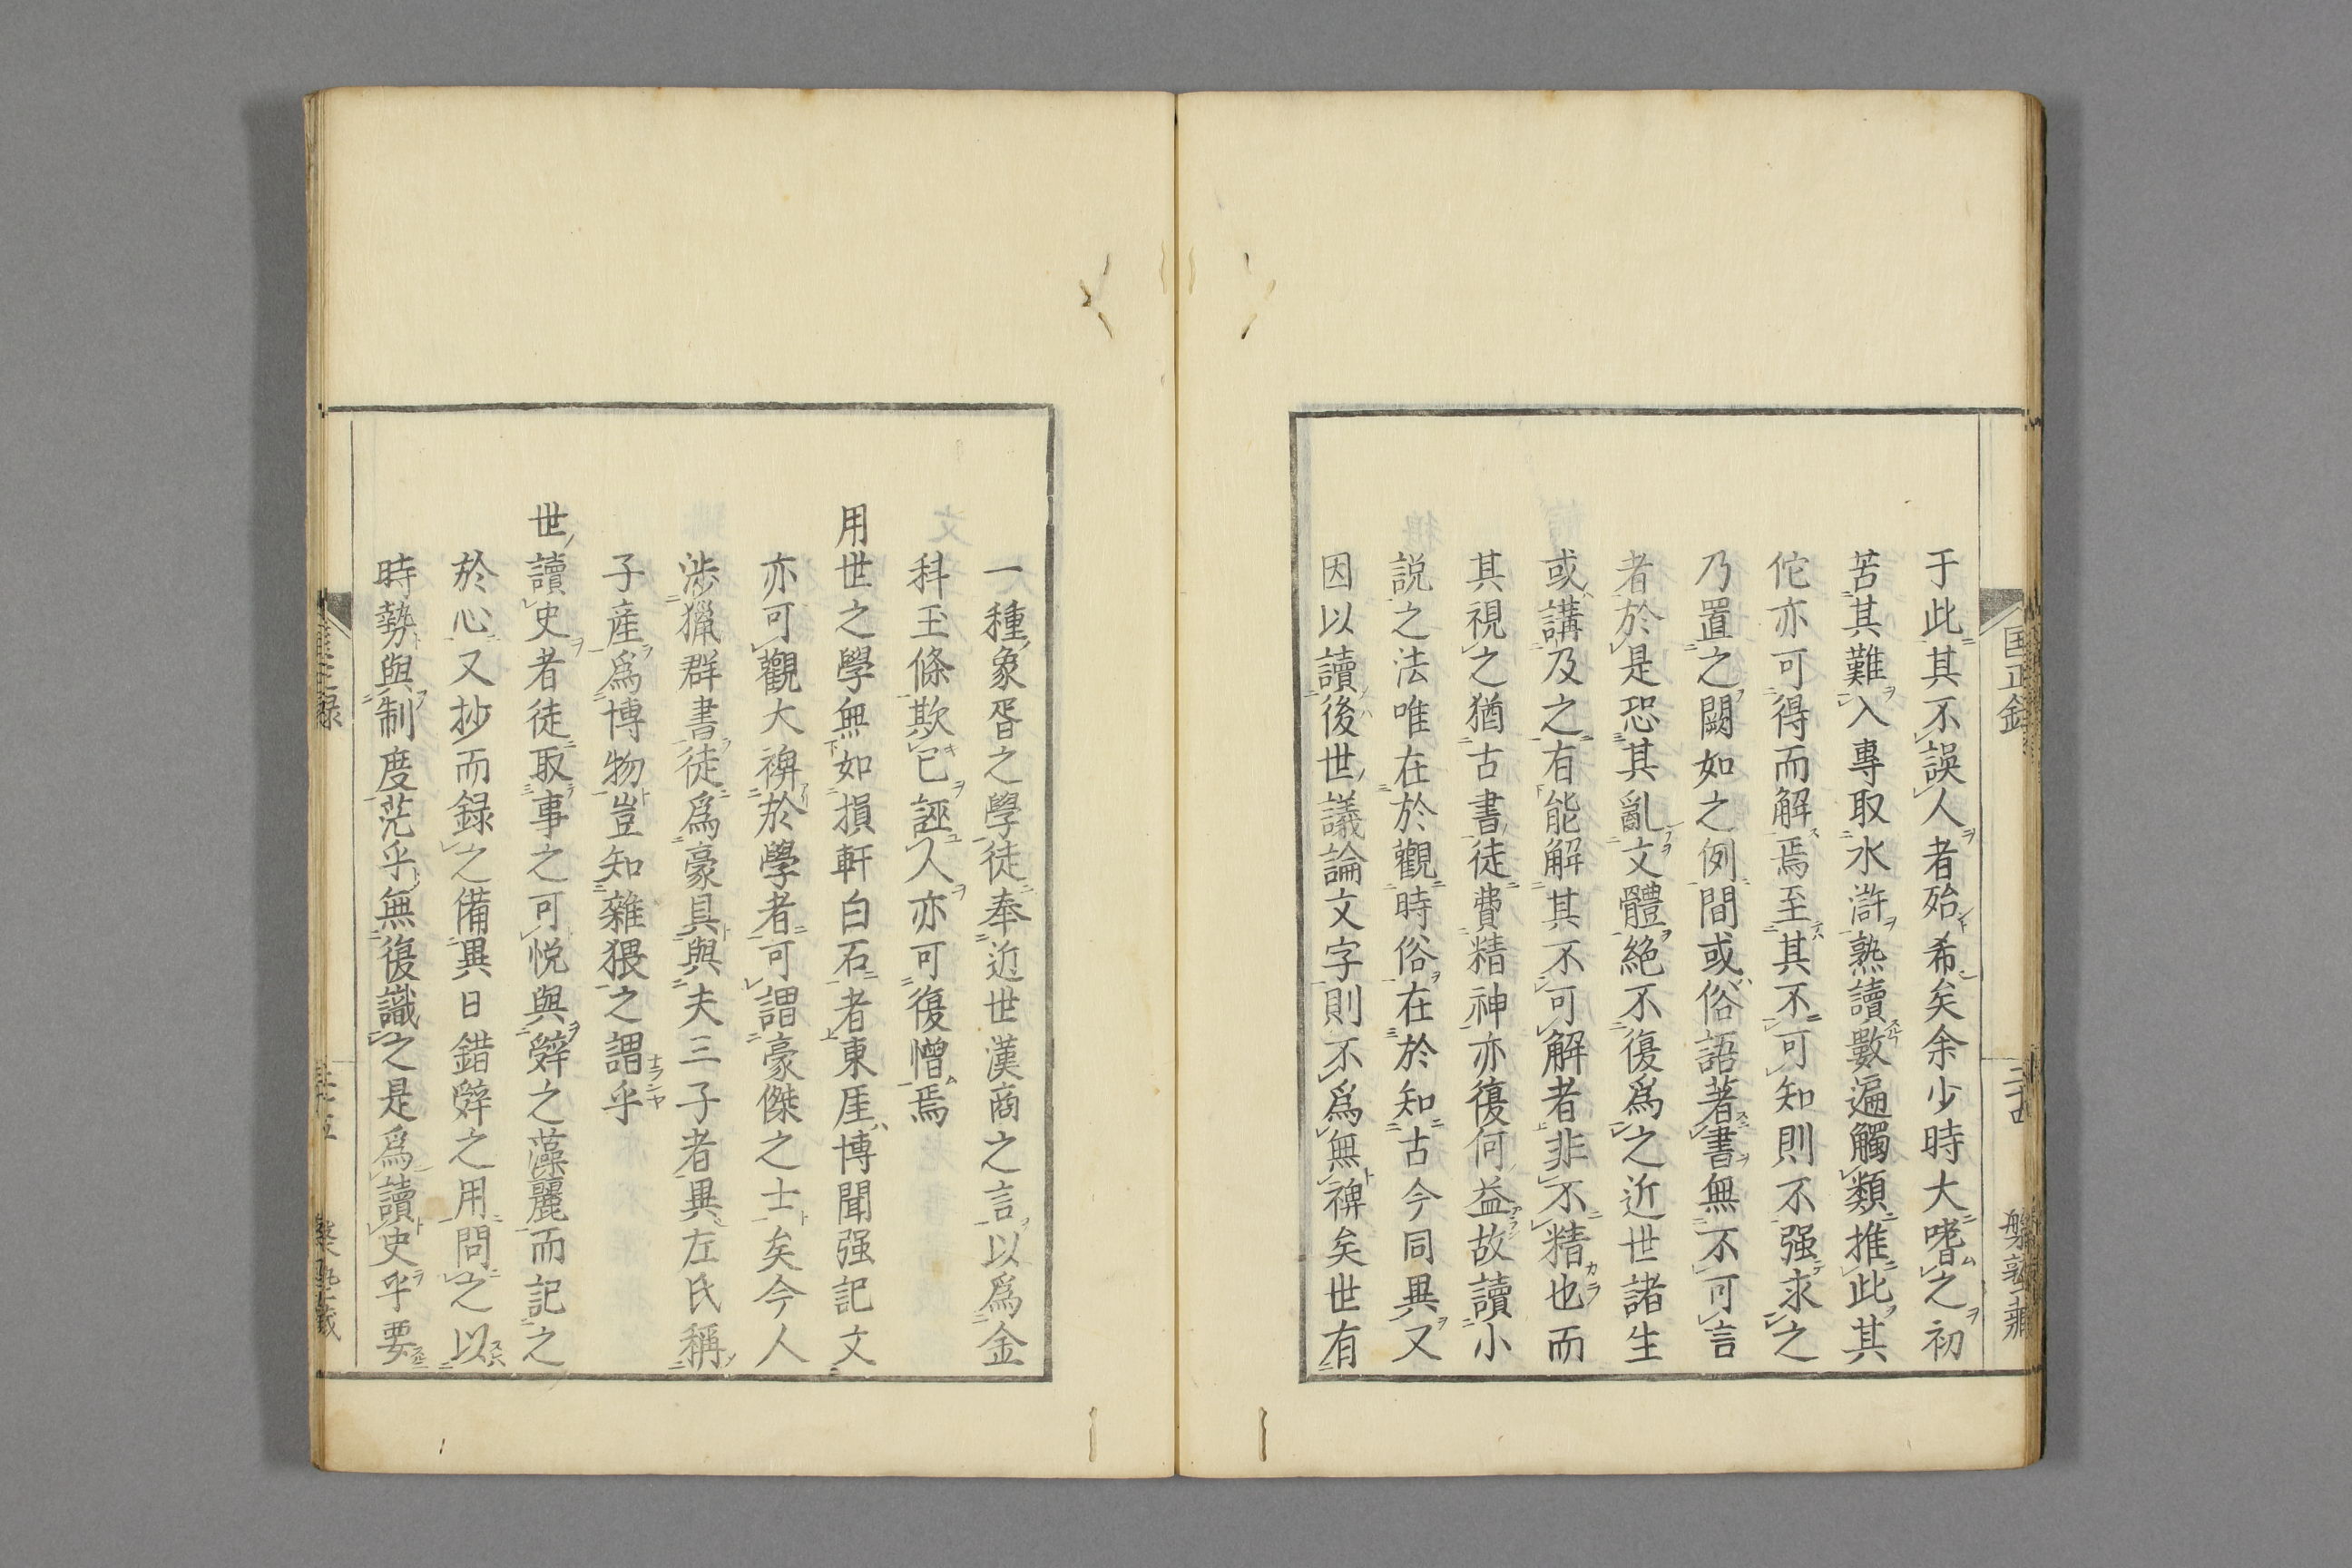 于此其不誤人者殆希矣余少時大嗜之初
苦其難入專取水滸熟讀數遍觸類推此其
佗亦可得而解焉至其不可知則不强求之
乃置之闕如之例間或俗語著書無不可言
者於是恐其亂文體絶不復爲之近世諸生
或講及之有能解其不可解者非不精也而
其視之猶古書徒費精神亦復何益故讀小
説之法唯在於觀時俗在於知古今同異又
因以讀後世議論文字則不爲無裨矣世有
一種象胥之學徒奉近世漢商之言以爲金
科玉條欺己誣人亦可復憎焉
用世之學無如損軒白石者東厓博聞强記文
亦可觀大裨於學者可謂豪傑之士矣今人
涉獵群書徒爲豪具與夫三子者異左氏稱
子産爲博物豈知雜猥之謂乎
世讀史者徒取事之可悦與辭之藻麗而記之
於心又抄而録之備異日錯辭之用問之以
時勢與制度茫乎無復識之是爲讀史乎要